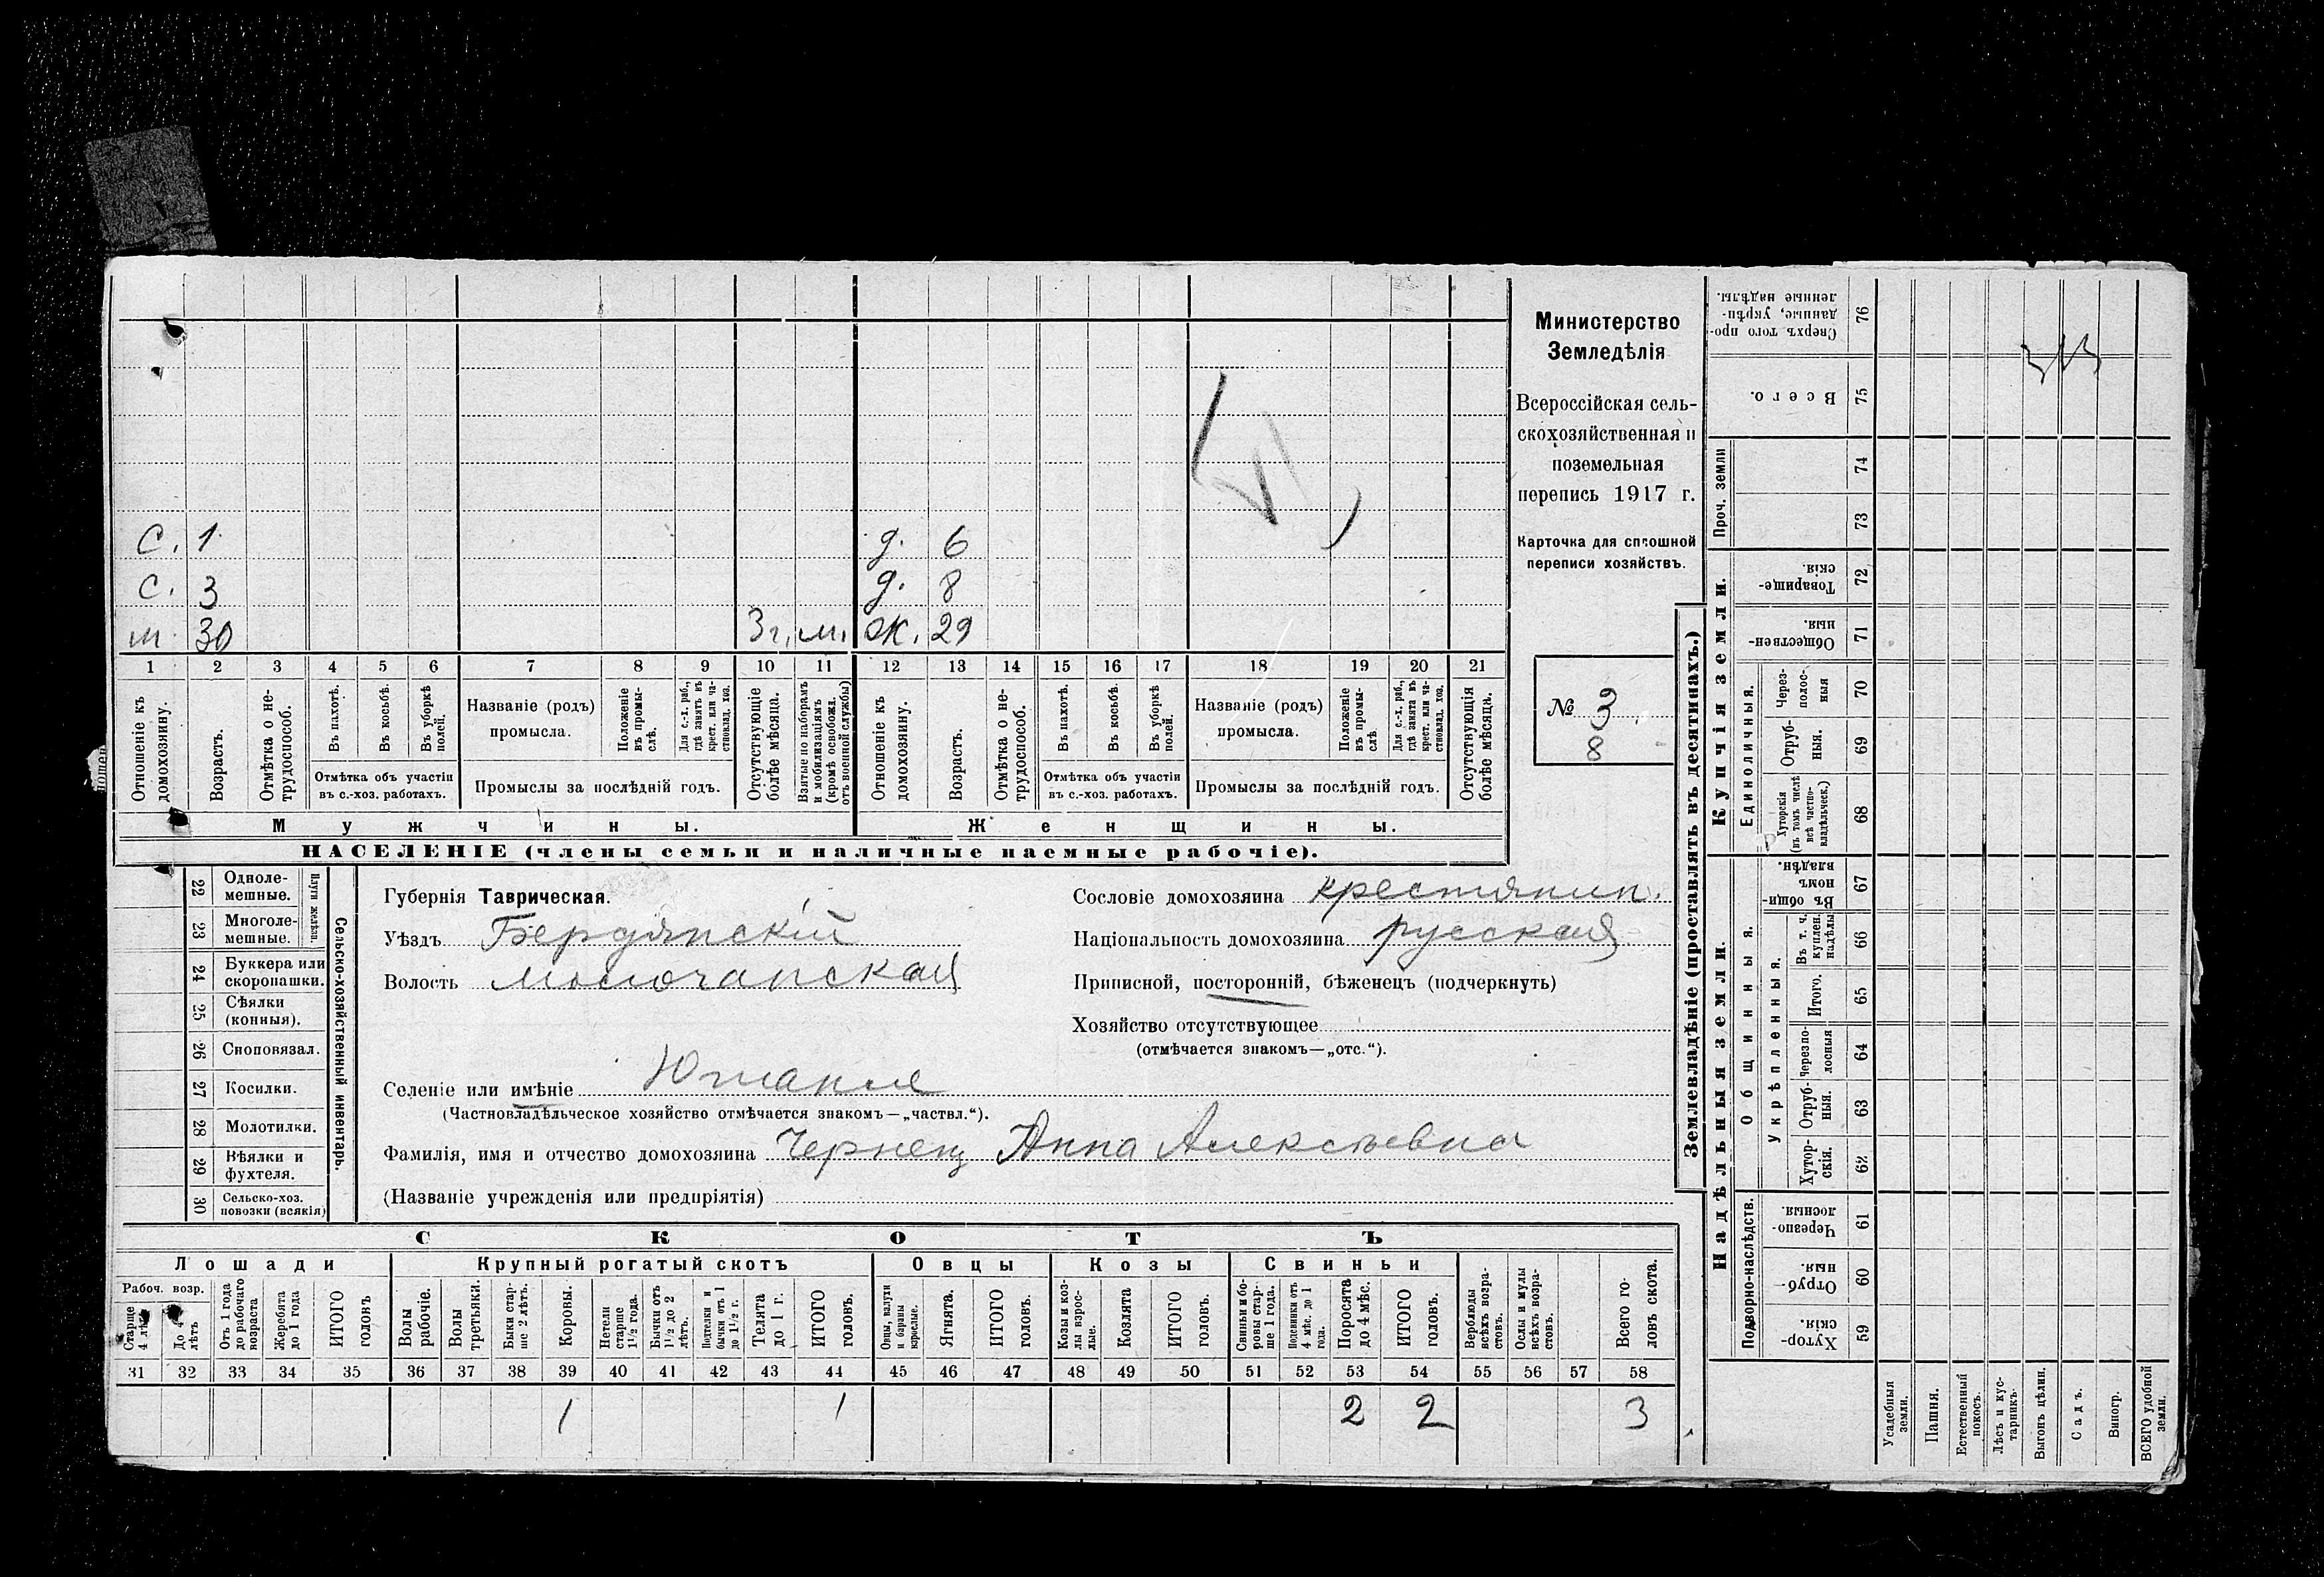 Министерство
Земледѣлія
Всероссійская сель-
скохозяйственная и
поземельная
перепись 1917 г.
Карточка для сплошной
переписи хозяйствъ.
№ 3.
8
с. 1. д. 6
с. 3 д. 8
м. 30 3 г. м. ж. 29
1 2 3 4 5 6 7 8 9 10 11 12 13 14 15 16 17 18 19 20 21
Отношеніе къ домохозяину.
Возрастъ.
Отмѣтка о не-трудоспособ.
Въ пахотѣ.
Въ косьбѣ.
Въ уборкѣ полей.
Отмѣтка объ участіи
въ с.-хоз. работахъ.
Названіе (родъ)
промысла.
Положеніе въ промы-слѣ.
Для с.-х. раб., гдѣ занятъ въ крест. или ча-стновлад. хоз.
Промыслы за послѣдній годъ.
Отсутствующіе болѣе мѣсяца.
Взятые по наборамъ и мобилизаціямъ (кромѣ освобожд. отъ военной службы)
Отношеніе къ домохозяину.
Возрастъ.
Отмѣтка о не-трудоспособ.
Въ пахотѣ.
Въ косьбѣ.
Въ уборкѣ полей.
Отмѣтка объ участіи
въ с.-хоз. работахъ.
Названіе (родъ)
промысла.
Положеніе въ промы-слѣ
Для с.-х. раб., гдѣ занята въ крест. или ча-стновлад. хоз.
Промыслы за послѣдній годъ.
Отсутствующія болѣе мѣсяца.
Мужчины. Женщины.
НАСЕЛЕНІЕ (члены семьи и наличные наемные рабочіе).
22 Одноле-мешные.
23 Многоле-мешные.
Плуги желѣзн.
24 Буккера или скоропашки.
25 Сѣялки (конныя).
26 Сноповязал.
27 Косилки.
28 Молотилки.
29 Вѣялки и фухтеля.
30 Сельско-хоз. повозки (всякія)
Сельско-хозяйственный инвентарь.
Губернія Таврическая.
Уѣздъ Бердянскій
Волость Молочанская
Селеніе или имѣніе
(Частновладѣльческое хозяйство отмѣчается знакомъ—„частвл.“).
Фамилія, имя и отчество домохозяина Чернец Анна Алексѣевна
(Названіе учрежденія или предпріятія)
Сословіе домохозяина крестянин.
Національность домохозяина русская
Приписной, посторонній, бѣженецъ (подчеркнуть)
Хозяйство отсутствующее
(отмѣчается знакомъ—„отс.“).
СКОТЪ
Лошади Крупный рогатый скотъ Овцы Козы Свиньи
Рабоч. возр.
Старше 4 лѣтъ
До 4 лѣтъ
Отъ 1 года до рабочаго возраста
Жеребята до 1 года
ИТОГО головъ
Волы рабочіе.
Волы третьяки.
Быки стар-ше 2 лѣтъ.
Коровы.
Нетели старше 1½ года.
Бычки отъ 1½ до 2 лѣтъ.
Подтелки и бычки отъ 1 до 1½ г.
Телята до 1 г.
ИТОГО головъ.
Овцы, валухи и бараны взрослые.
Ягнята.
ИТОГО головъ.
Козы и коз-лы взрос-лые.
Козлята
ИТОГО головъ.
Свиньи и бо-ровы стар-ше 1 года.
Подсвинки отъ 4 мѣс. до 1 года.
Поросята до 4 мѣс.
ИТОГО головъ.
Верблюды всѣхъ возра-стовъ.
Ослы и мулы всѣхъ возра-стовъ.
Всего го-ловъ скота.
31 32 33 34 35 36 37 38 39 40 41 42 43 44 45 46 47 48 49 50 51 52 53 54 55 56 57 58
1 1 2 2 3
Землевладѣніе (проставлять въ десятинахъ.)
Купчія земли.
Надѣльныя земли.
Сверхъ того про-данные, укрѣп-ленные надѣлы. 76
Всего. 75
Проч. земли
74
73
Товарище-скія 72
Обществен-ныя. 71
Единоличныя.
Через-полос-ныя 70
Отруб-ныя. 69
Хуторскія (въ томъ числѣ всѣ частно-владѣльческ.) 68
Общинныя.
Въ общин-номъ владѣн. 67
Укрѣпленныя.
Въ т. ч. куплен. надѣлы 66
Итого. 65
Черезпо-лосныя 64
Отруб-ныя. 63
Хутор-скія. 62
Подворно-наслѣдств.
Черезпо-лосныя. 61
Отруб-ныя. 60
Хутор-скія. 59
Усадебныя земли.
Пашня.
Естественный покосъ.
Лѣсъ и кус-тарникъ.
Выгонъ цѣлин.
Садъ.
Виногр.
ВСЕГО удобной земли.